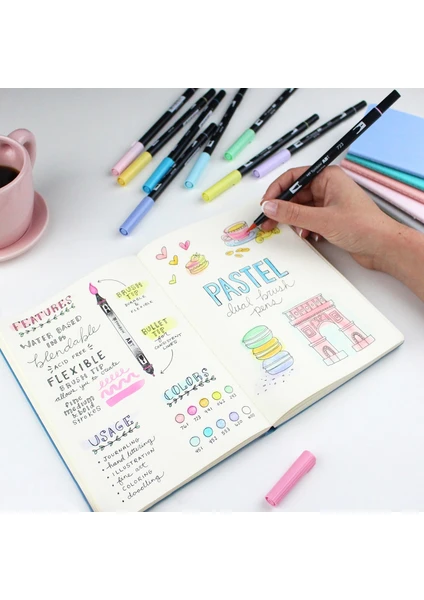 FEATURES
WATER BASED
INK
blendable
ACID FREE
FLEXIBLE
BRUSH TIP
allows you to create
fine
medium
& bold
strokes
USAGE
• JOURNALING
• hand lettering
• ILLUSTRATION
• fine art
• COLORING
• doodling
BRUSH
TIP
FLEXIBLE
BULLET
TIP
FOR
CONSISTENT
LINES
COLORS
PASTEL
dual brush
pens
723